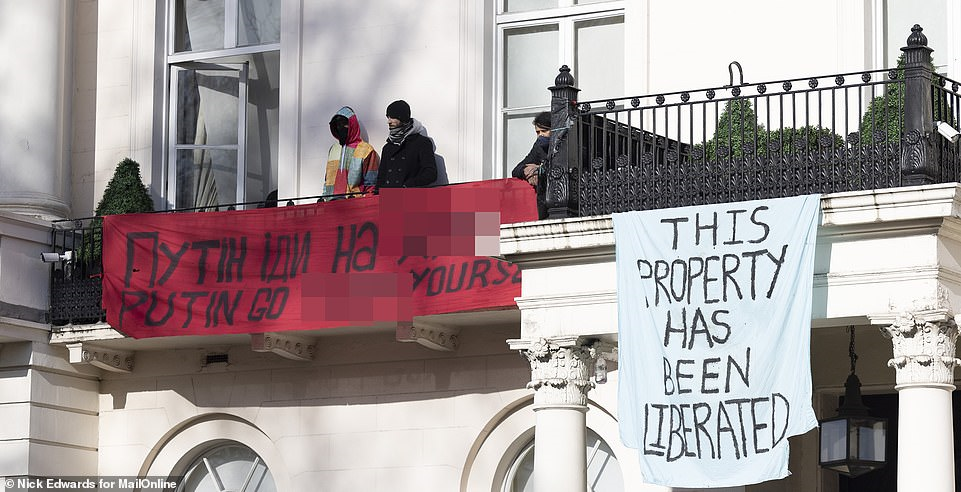 ПУТІН ІДИ НА
PUTIN GO
THIS
PROPERTY
HAS
BEEN
LIBERATED
© Nick Edwards for MailOnline